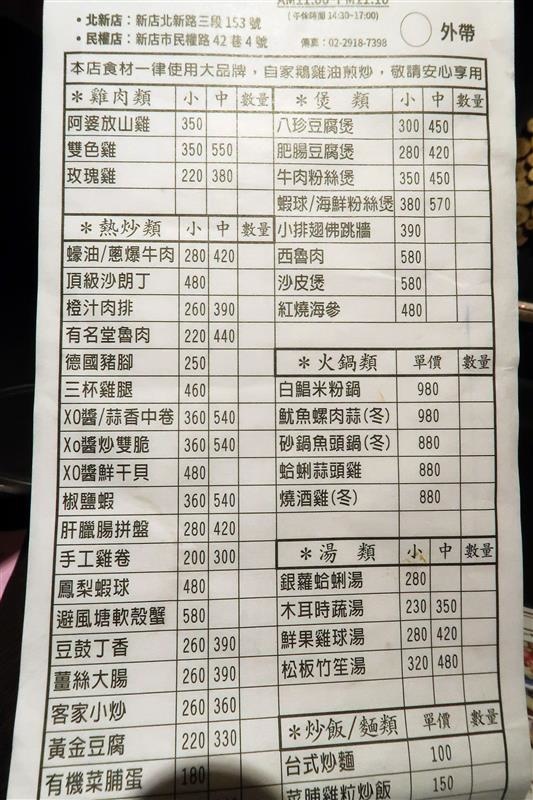 AM11:00-PM11:10
•北新店：新店北新路三段153號
(午休時間14:30~17:00)
•民權店：新店市民權路42巷4號
傳真：02-2918-7398
外帶
本店食材一律使用大品牌，自家鵝雞油煎炒，敬請安心享用
＊雞肉類 小 中 數量
阿婆放山雞 350
雙色雞 350 550
玫瑰雞 220 380
＊熱炒類 小 中 數量
蠔油/蔥爆牛肉 280 420
頂級沙朗丁 480
橙汁肉排 260 390
有名堂魯肉 220 440
德國豬腳 250
三杯雞腿 460
XO醬/蒜香中卷 360 540
Xo醬炒雙脆 360 540
XO醬鮮干貝 480
椒鹽蝦 360 540
肝臘腸拼盤 280 420
手工雞卷 200 300
鳳梨蝦球 480
避風塘軟殼蟹 580
豆鼓丁香 260 390
薑絲大腸 260 390
客家小炒 260 360
黃金豆腐 220 330
有機菜脯蛋 180
＊煲類 小 中 數量
八珍豆腐煲 300 450
肥腸豆腐煲 280 420
牛肉粉絲煲 350 450
蝦球/海鮮粉絲煲 380 570
小排翅佛跳牆 390
西魯肉 580
沙皮煲 580
紅燒海參 480
＊火鍋類 單價 數量
白鯧米粉鍋 980
魷魚螺肉蒜(冬) 980
砂鍋魚頭鍋(冬) 880
蛤蜊蒜頭雞 880
燒酒雞(冬) 880
＊湯類 小 中 數量
銀蘿蛤蜊湯 280
木耳時蔬湯 230 350
鮮果雞球湯 280 420
松板竹笙湯 320 480
＊炒飯/麵類 單價 數量
台式炒麵 100
菜脯雞粒炒飯 150